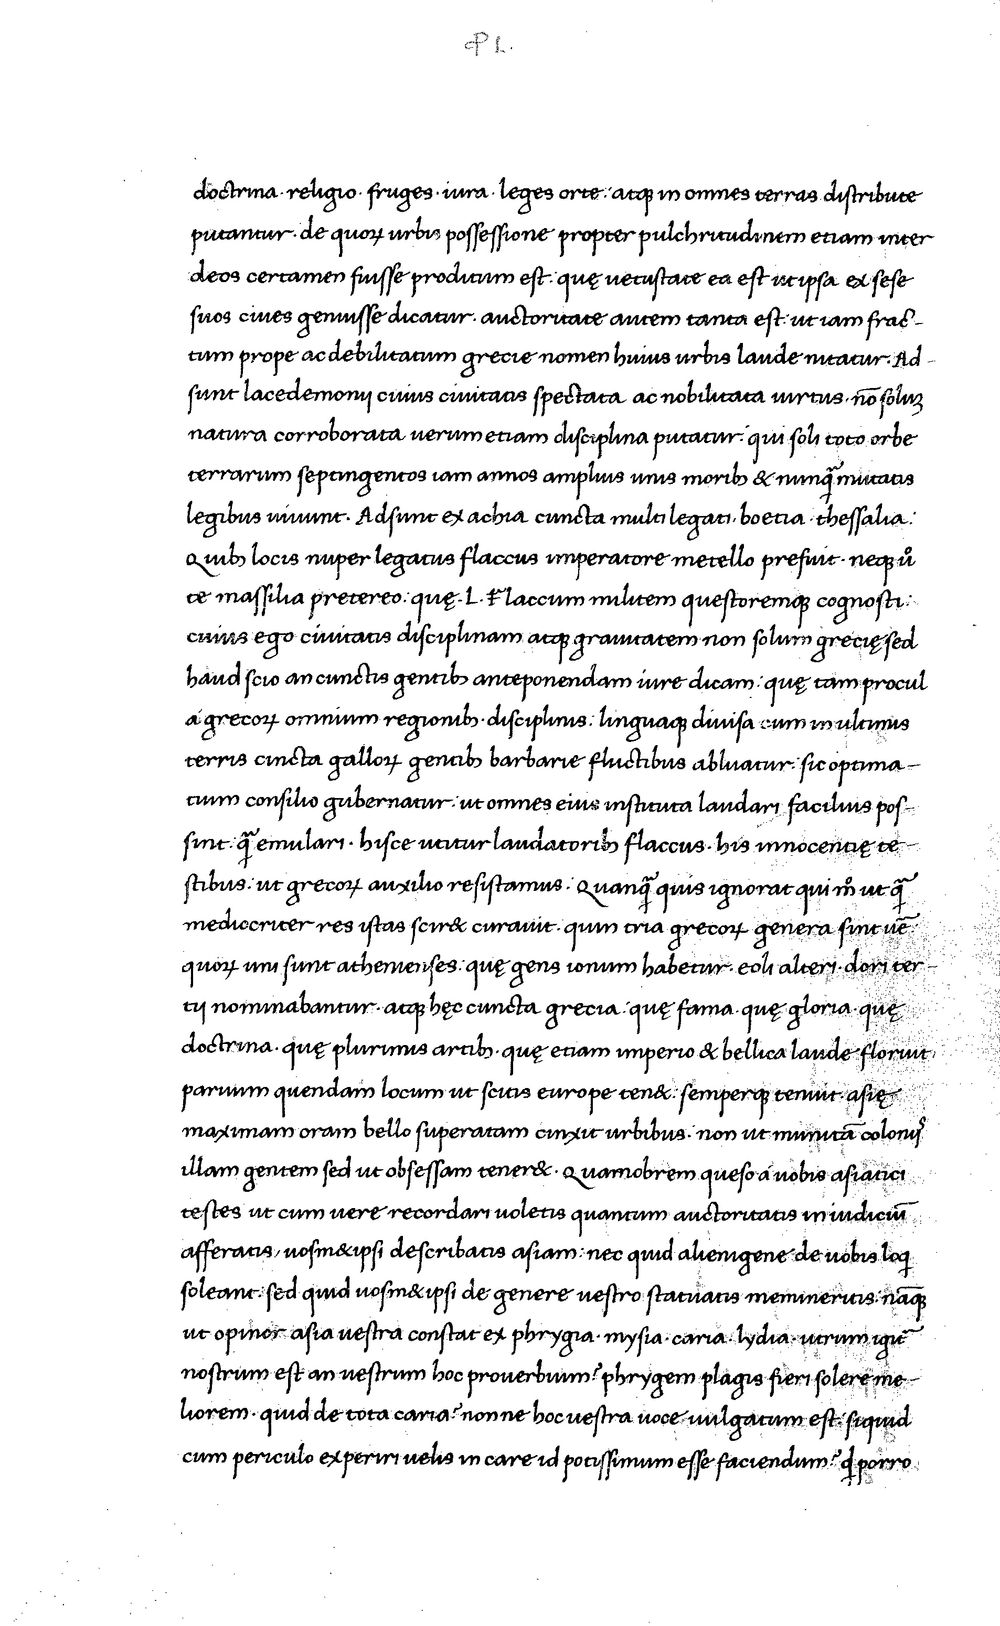 doctrina · religio · fruges · iura · leges orte : atq in omnes terras distribute
putantur · de quoꝝ urbis possessione propter pulchritudinem etiam inter
deos certamen fuisse proditum est : quę uetustate ea est ut ipsa ex sese
suos ciues genuisse dicatur · auctoritate autem tanta est : ut iam frac-
tum prope ac debilitatum grecie nomen huius urbis laude nitatur · Ad-
sunt lacedemonij cuius ciuitatis spectata ac nobilitata uirtus · nō soluꝫ
natura corroborata uerum etiam disciplina putatur : qui soli toto orbe
terrarum septingentos iam annos amplius unis moribꝫ & nunq̄ mutatis
legibus uiuunt · Adsunt ex achia cuncta multi legati · boetia · thessalia :
Quibꝫ locis nuper legatus flaccus imperatore metello prefuit · neqꝫ uͦ
te massilia pretereo : quę · L · Flaccum militem questoremqꝫ cognosti :
cuius ego ciuitatis disciplinam atqꝫ grauitatem non solum grecię sed
haud scio an cunctis gentibꝫ anteponendam iure dicam : quę tam procul
a grecoꝝ omnium regionibꝫ · disciplinis : linguaqꝫ diuisa cum in ultimis
terris cincta galloꝝ gentibꝫ barbarie fluctibus abluatur : sic optima-
tium consilio gubernatur : ut omnes eius instituta laudari facilius pos-
sint : q̄ emulari · hisce utitur laudatoribꝫ flaccus · his innocentię te-
stibus : ut grecoꝝ auxilio resistamus : Quanq̄ quis ignorat qui mͦ ut q̄
mediocriter res istas scir& curauit · quin tria grecoꝝ genera sint ue͞ :
quoꝝ uni sunt athenienses : quę gens ionum habetur · eoli alteri · dori ter-
tij nominabantur · atqꝫ hęc cuncta grecia : quę fama · quę gloria · quę
doctrina · quę plurimis artibꝫ · quę etiam imperio & bellica laude floruit ·
paruum quendam locum ut scitis europe ten& : semperqꝫ tenuit · asię
maximam oram bello superatam cinxit urbibus · non ut munitā colonijs
illam gentem sed ut obsessam tener& · Quamobrem queso a uobis asiatici
testes ut cum uere recordari uoletis quantum auctoritatis in iudiciū
afferatis, uosm&ipsi describatis asiam : nec quid alienigene de uobis loq̄
soleant : sed quid uosm&ipsi de genere uestro statuatis memineritis · nāqꝫ
ut opinor asia uestra constat ex phrygia · mysia · caria · lydia · utrum igit̄
nostrum est an uestrum hoc prouerbium? phrygem plagis fieri solere me-
liorem · quid de tota caria? nonne hoc uestra uoce uulgatum est : siquid
cum periculo experiri uelis in care id potissimum esse faciendum? qͥd porro